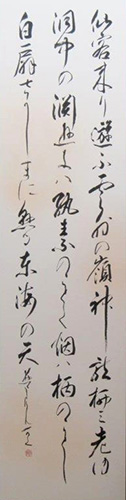 仙客来り遊ぶ雲外の嶺神龍栖み老ゆ
洞中の淵雪は紈素のごとく烟は柄のごとし
白扇さかしまに懸る東海の天